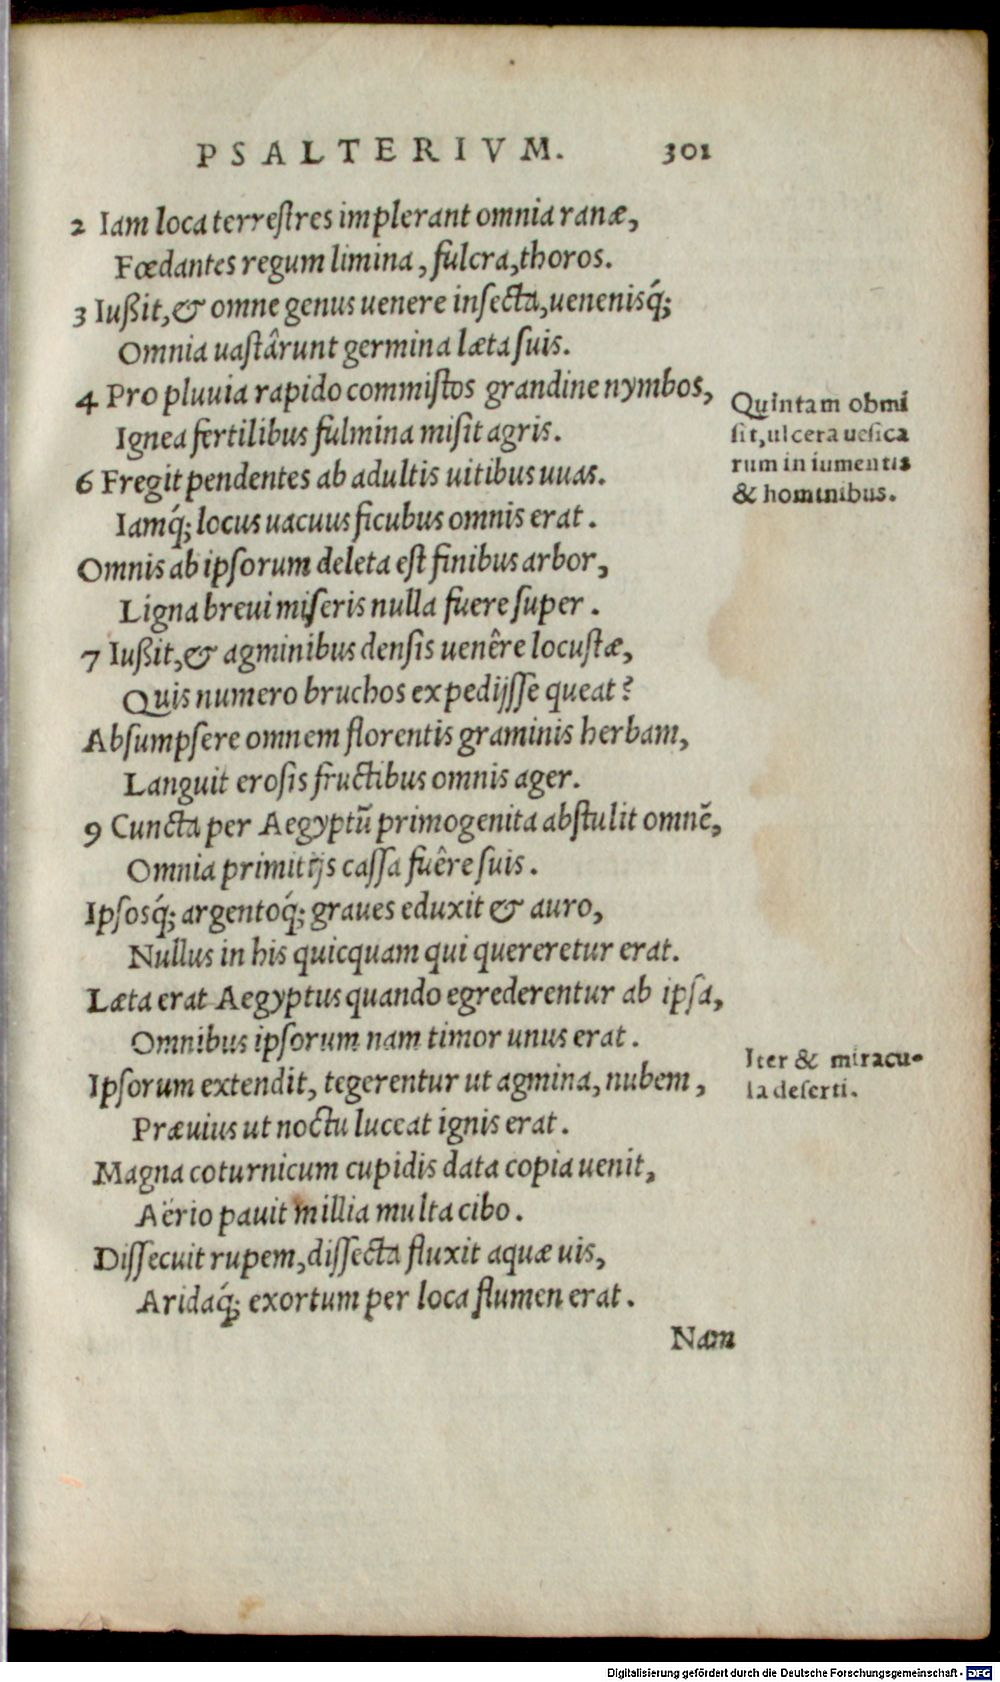 PSALTERIVM. 301
2 Iam loca terrestres implerant omnia ranæ,
Fœdantes regum limina, fulcra, thoros.
3 Iußit, & omne genus uenere insecta, uenenisq́;
Omnia uastârunt germina læta suis.
4 Pro pluuia rapido commistos grandine nymbos,
Ignea fertilibus fulmina misit agris.
6 Fregit pendentes ab adultis uitibus uuas.
Iamq́; locus uacuus ficubus omnis erat.
Omnis ab ipsorum deleta est finibus arbor,
Ligna breui miseris nulla fuere super.
7 Iußit, & agminibus densis uenêre locustæ,
Quis numero bruchos expedijsse queat?
Absumpsere omnem florentis graminis herbam,
Languit erosis fructibus omnis ager.
9 Cuncta per Aegyptũ primogenita abstulit omnẽ,
Omnia primitijs cassa fuêre suis.
Ipsosq́; argentoq́; graues eduxit & auro,
Nullus in his quicquam qui quereretur erat.
Læta erat Aegyptus quando egrederentur ab ipsa,
Omnibus ipsorum nam timor unus erat.
Ipsorum extendit, tegerentur ut agmina, nubem,
Præuius ut noctu luceat ignis erat.
Magna coturnicum cupidis data copia uenit,
Aërio pauit millia multa cibo.
Dissecuit rupem, dissecta fluxit aquæ uis,
Aridaq́; exortum per loca flumen erat.
Nam
Quintam obmi
sit, ulcera uesica
rum in iumentis
& hominibus.
Iter & miracu-
la deserti.
Digitalisierung gefördert durch die Deutsche Forschungsgemeinschaft - DFG